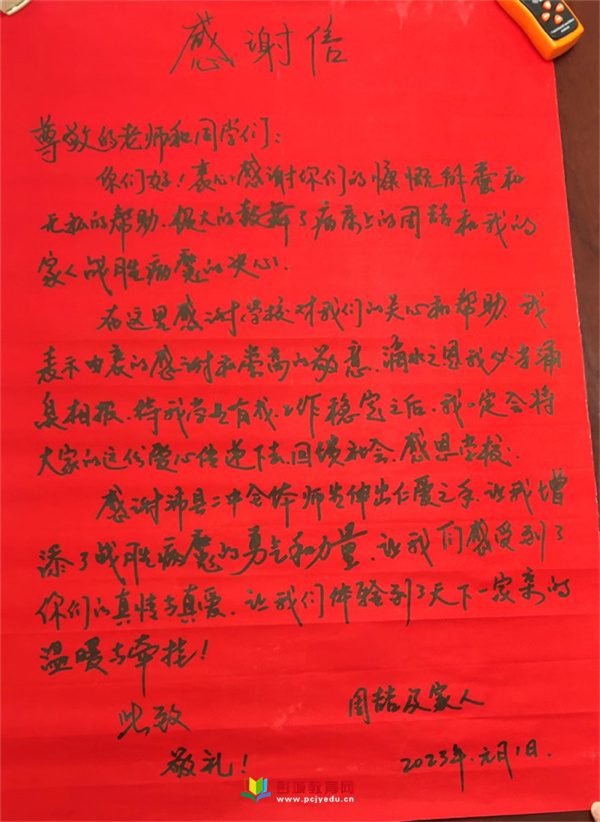 感谢信
尊敬的老师和同学们：
你们好！衷心感谢你们的慷慨解囊和
无私的帮助，极大的鼓舞了病床上的周喆和我的
家人战胜病魔的决心。
在这里感谢学校对我们的关心和帮助，我
表示由衷的感谢和崇高的敬意，滴水之恩我必当涌
泉相报，待我学业有成，工作稳定之后，我一定会将
大家的这份爱心传递下去，回馈社会、感恩学校。
感谢沛县二中全体师生伸出仁爱之手，让我增
添了战胜病魔的勇气和力量，让我们感受到了
你们的真情与真爱，让我们体验到了天下一家亲的
温暖与牵挂！
此致
周喆及家人
敬礼！
2023年元月1日.
彭城教育网
www.pcjyedu.cn